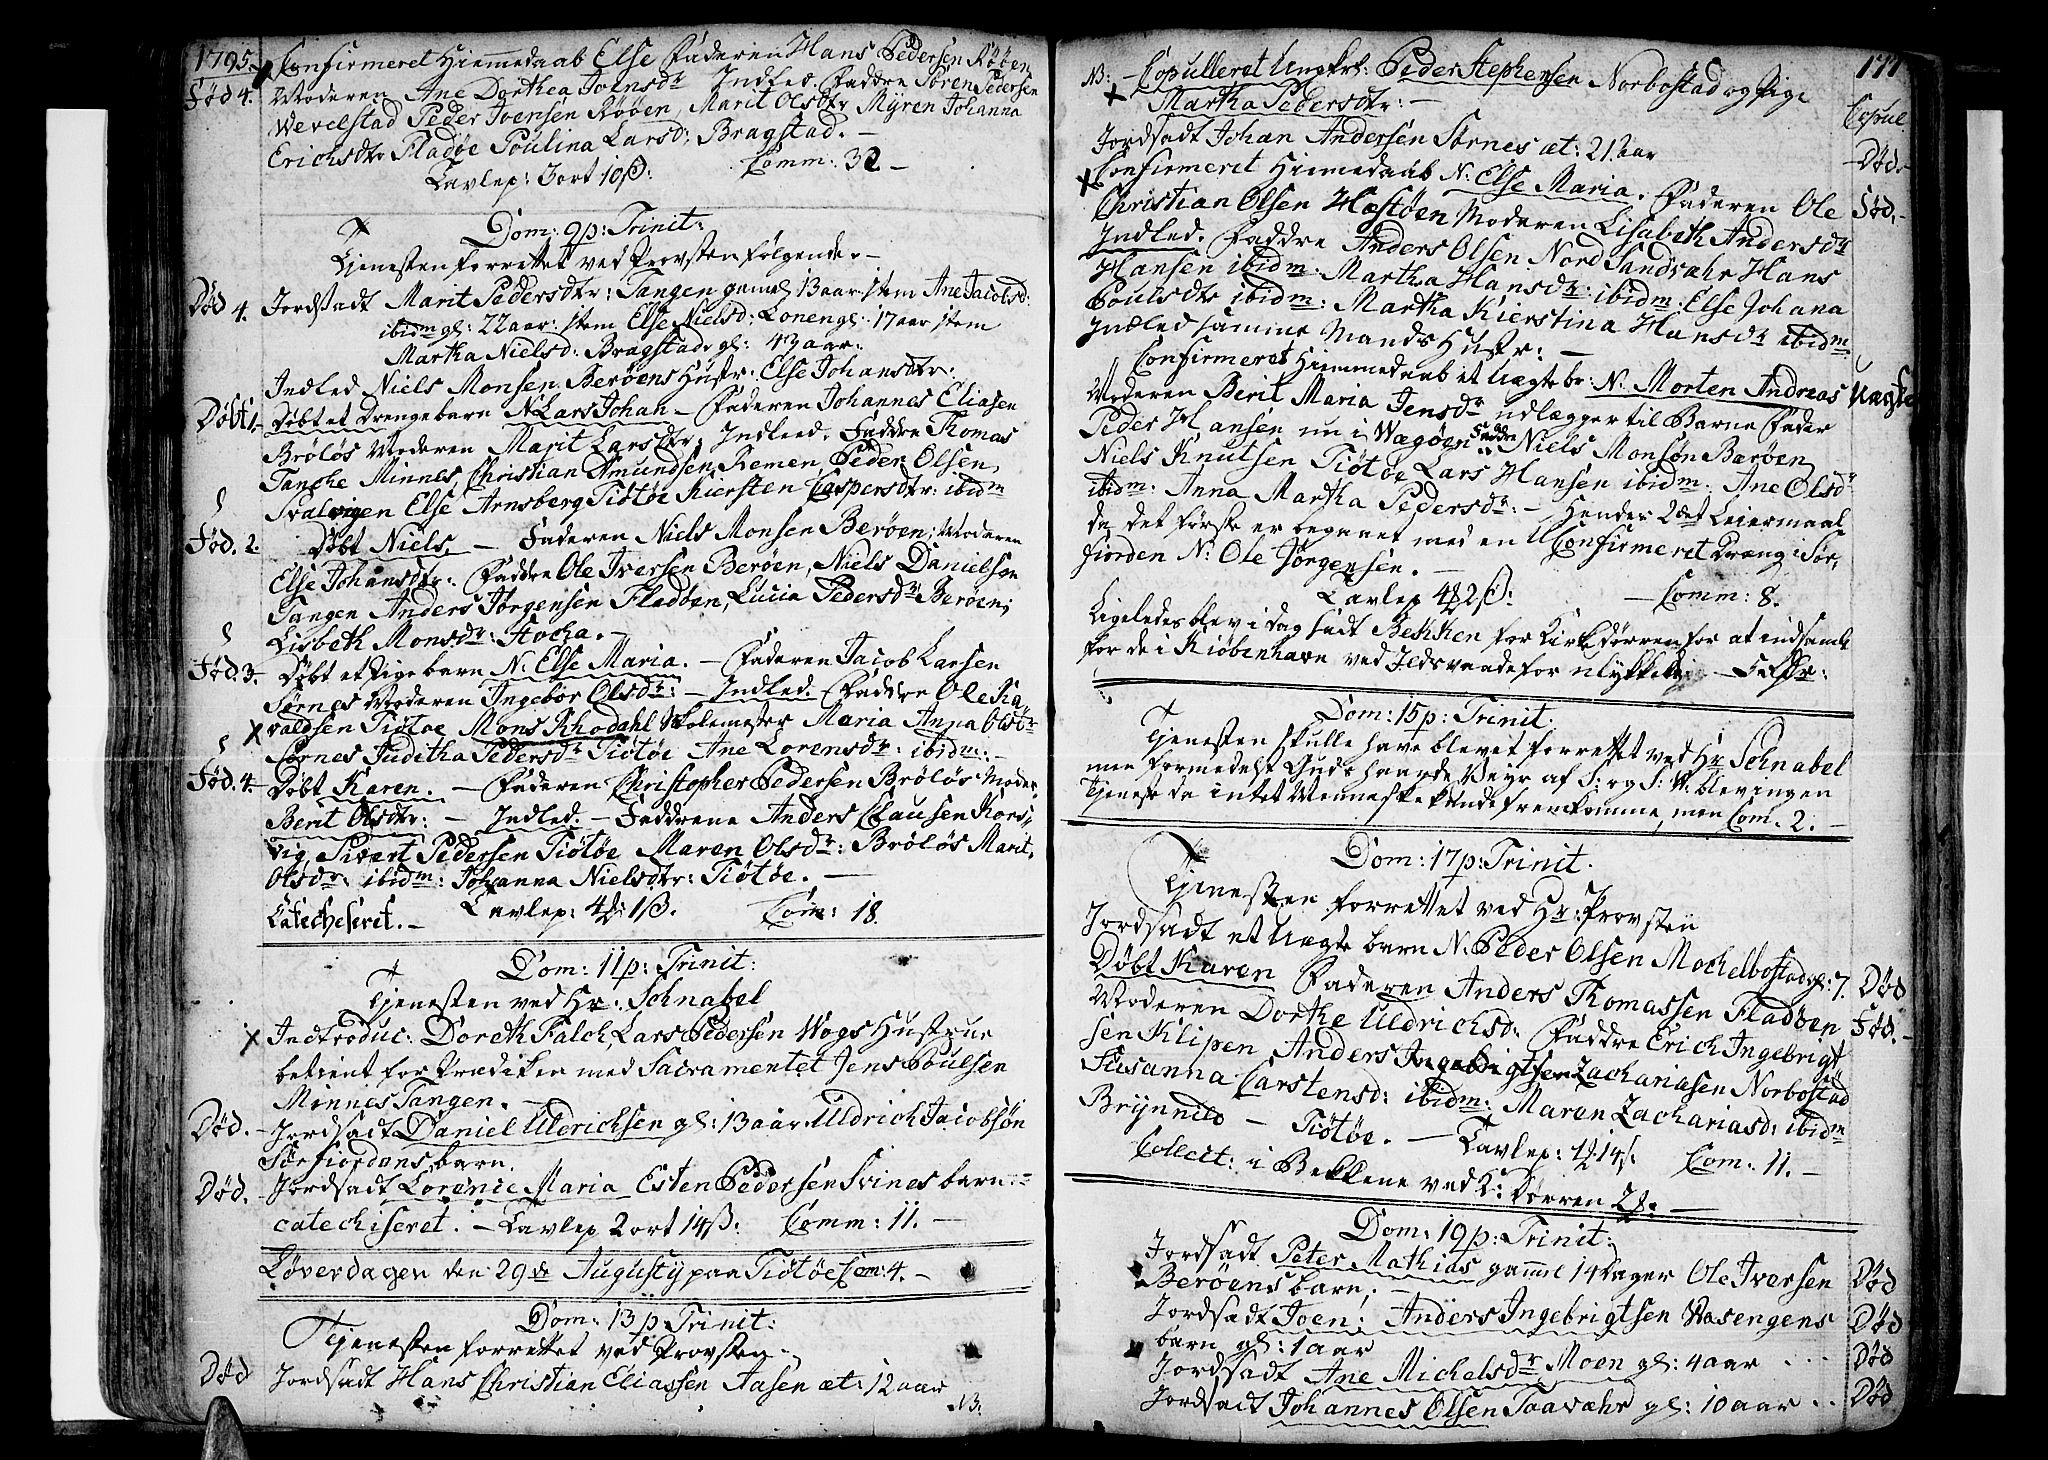 1795. Confirmeret Hiemmedaab Else Faderen Hans Pedersen Røøen
Fød 4. Moderen Ane Dorthea Joensdr Indled Faddre Søren Pedersen
Wevelstad Peder Joensen Røøen, Marit Olsdtr Mÿren Johanna
Erichsdtr Fladøe Poulina Larsd: Bragstad. —
Tavlep: 3 ort 10 ß: Comm: 32 —
Dom: 9 p: Trinit:
Tjenesten forrettet ved Provsten følgende. —
Død 4. Jordsadt Marit Pedersdtr: Tangen gamel 13 aar item Ane Jacobsd:
ibidm gl: 22 aar: item Else Nielsd: Lonen gl: 17 aar item
Martha Nielsd: Bragstad gl: 43 aar:
Indled Niels Monsen Berøens Hustr: Else Johansdtr.
Døbt 1. Døbt et Drengebarn N. Lars Johan — Faderen Johannes Eliasen
Brøløs Moderen Marit Larsdtr, Indleed. Faddre Thomas
Tanche Minnes, Christian Amundsen, Remen, Peder Olsen,
Svalvigen Else Arnsberg Tiøtøe Kiersten Caspersdtr: ibidm
Fød. 2. Døbt Niels, — Faderen Niels Monsen Berøen; Moderen
Else Johansdtr: Faddre Ole Iversen Berøen, Niels Danielsen
Tangen Anders Jørgensen Fladøen, Lucia Pedersdr Berøen;
Lisbeth Monsdr: Hocha. —
Fød. 3. Døbt et Pigebarn N. Else Maria. — Faderen Jacob Larsen
Sørnes Moderen Ingebor Olsdr: — Indled. Faddre Ole Ra-
valdsen Tiøtøe Mons Rhodahl Skolemester Maria Anna Olsdr
Sørnes Juditha Pedersdr Tiøtøe Ane Lorensdr: ibidm: —
Fød. 4. — Døbt Karen. — Faderen Christopher Pedersen Brøløs Moder
Berit Olsdtr: — Indled. — Faddrene Anders Clausen Kors-
vig, Sivert Pedersen Tiøtøe Maren Olsdr: Brøløs Marit
Olsdr: ibidm: Johanna Nielsdtr: Tiøtøe. —
Catecheseret. — Tavlep: 4 1 ß. Com: 18.
Dom: 11 p: Trinit:
Tjenesten ved Hr: Schnabel
Introduc: Doreth Falch, Lars Pedersen Wogs Hustrue
betient for Prædiken med Sacramentet Jens Poulsen
Minnes Tangen. —
Død. — Jordsadt Daniel Uldrichsen gl: 13 aar Uldrich Jacobsøn
Sørfiordens barn.
Død. Jordsadt Lorence Maria Esten Pedersen Svines barn
catechiseret. — Tavlep 2 ort 14 ß: Comm: 11. —
Løverdagen den 29de Augustÿ paa Tiøtøe Com: 4. —
Dom: 13 p Trinit:
Tjenesten forrettet ved Provsten.
Død Jordsadt Hans Christian Eliassen Aasen æt: 12 aar
NB.
177
NB: — Copulleret Ungkrl: Peder Stephensen Norbostad og Pige
Martha Pedersdtr: — Copul.
Jordsadt Johan Andersen Sørnes æt: 21 aar Død. —
Confirmeret Hiemmedaab N. Else Maria. Faderen Ole
Christian Olsen Hæstøen Moderen Lisabeth Andersdr Fød. —
Indled. Faddre Anders Olsen Nord Sandvahr Hans
Hansen ibidm: Martha Hansdr: ibidm: Else Johana
Poulsdtr ibidm: Martha Kierstina Hansdr ibidm:
Indled samme Mands Hustr: —
Confirmeret Hiemmedaab et Uægte br: N. Morten Andreas Uægte
Moderen Berit Maria Jensdr udlægger til Barne Fader
Peder Hansen nu i Wægøen Faddre Niels Monsøn Barøen
Niels Knutsen Tiøtøe Lars Hansen ibidm: Ane Olsdr
ibidm. Anna Martha Pedersdr: — Hendes 2det Leiermaal
da det første er begaaet med en UConfirmeret Dræng i Sør-
fiorden N: Ole Jørgensen. —
Tavlep 4 2 ß: — Comm: 8.
Ligeledes blev i dag sadt Bekken for Kirkedørren for at indsamle
for de i Kiøbenhavn ved Ildsvaade for
Dom: 15 p: Trinit.
Tjenesten skulle have blevet forrettet ved Hr Schnabel
men formedelst Guds haarde Veyr af S: og S: W. blev ingen
Tjeneste da intet Menneske kunde fremkomme, men Com. 2. —
Dom: 17 p: Trinit.
Tjenesten forrettet ved Hr: Provsten
Jordsadt et Uægte barn N. Peder Olsen Mochelbostad gl: 7. Død
Døbt Karen Faderen Anders Thomassen Fladøen
Moderen Dorthe Uldrichsd: Faddre Erich Ingebrigt Fød. —
sen Klipen Anders Zachariasen Norbostad
Susanna Carstensd: ibidm: Maren Zachariasd: ibidm
Brÿnnild — Tiøtøe. — Tavlep: 1 14 ß: Com: 11. —
Collect: i Bekkene ved K: Dørren
Dom: 19 p: Trinit:
Jordsadt Peter Mathias gamml 14 Dager Ole Iversen Død
Berøens barn. —
Jordsadt Joen; Anders Ingebrigtsen Stasengens Død
barn gl: 1 aar
Jordsadt Ane Michelsdr Moen gl: 4 aar . . . Død
Jordsadt Johannes Olsen Taavahr gl: 10 aar . . Død